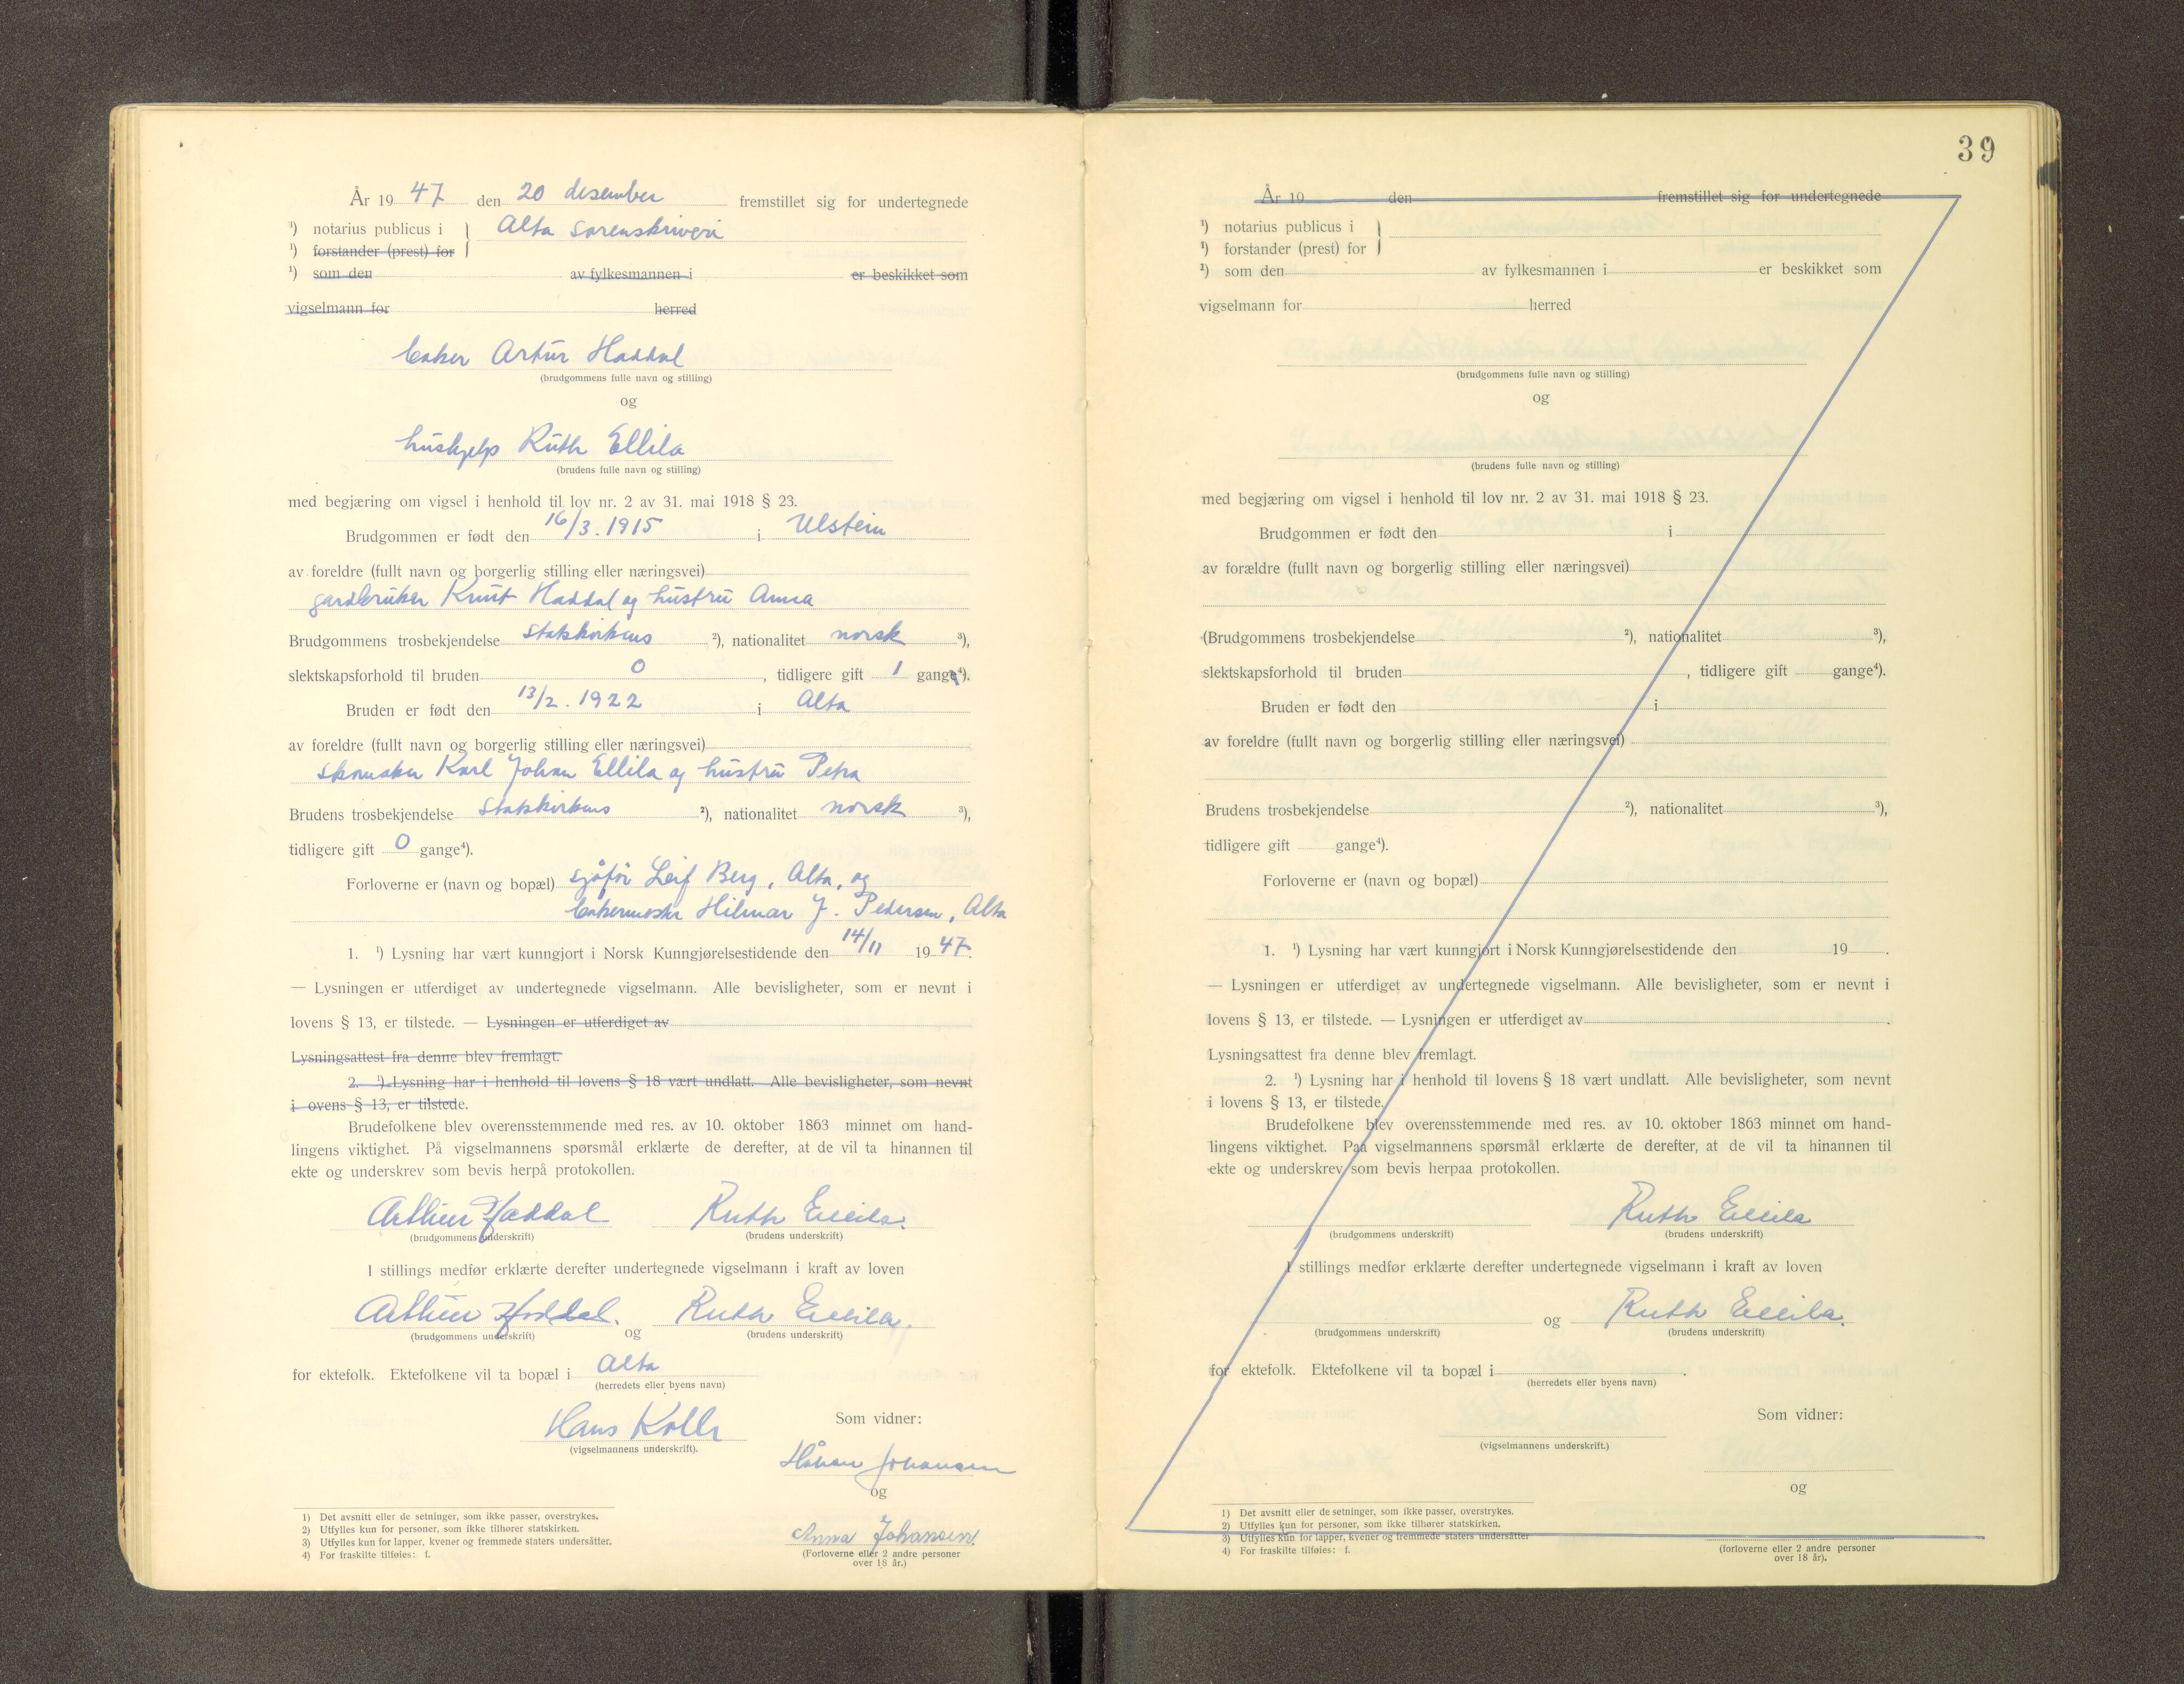 År 19 47 den 20 desember fremstillet sig for undertegnede
¹) notarius publicus i } Alta sorenskriveri
¹) forstander (prest) for
¹) som den av fylkesmannen i er beskikket som
vigselmann for herred
baker Artur Haddal
(brudgommens fulle navn og stilling)
og
hushjelp Ruth Ellila
(brudens fulle navn og stilling)
med begjæring om vigsel i henhold til lov nr. 2 av 31. mai 1918 § 23.
Brudgommen er født den 16/3. 1915 i Ulstein
av foreldre (fullt navn og borgerlig stilling eller næringsvei)
gardbruker Knut Haddal og hustru Anna
Brudgommens trosbekjendelse statskirkens ²), nationalitet norsk ³),
slektskapsforhold til bruden 0, tidligere gift 1 gange⁴).
Bruden er født den 13/2. 1922 i Alta
av foreldre (fullt navn og borgerlig stilling eller næringsvei)
skomaker Karl Johan Ellila og hustru Petra
Brudens trosbekjendelse statskirkens ²), nationalitet norsk ³),
tidligere gift 0 gange⁴).
Forloverne er (navn og bopæl) sjåfør Leif Berg, Alta, og
bakermester Hilmar J. Pedersen, Alta
1. ¹) Lysning har vært kunngjort i Norsk Kunngjørelsestidende den 14/11 19 47.
— Lysningen er utferdiget av undertegnede vigselmann. Alle bevisligheter, som er nevnt i
lovens § 13, er tilstede. — Lysningen er utferdiget av
Lysningsattest fra denne blev fremlagt.
2. ¹) Lysning har i henhold til lovens § 18 vært undlatt. Alle bevisligheter, som nevnt
i ovens § 13, er tilstede.
Brudefolkene blev overensstemmende med res. av 10. oktober 1863 minnet om hand-
lingens viktighet. På vigselmannens spørsmål erklærte de derefter, at de vil ta hinannen til
ekte og underskrev som bevis herpå protokollen.
Arthur Haddal Ruth Ellila.
(brudgommens underskrift) (brudens underskrift)
I stillings medfør erklærte derefter undertegnede vigselmann i kraft av loven
Arthur Haddal. og Ruth Ellila.
(brudgommens underskrift) (brudens underskrift)
for ektefolk. Ektefolkene vil ta bopæl i Alta
(herredets eller byens navn)
Hans Kolls
(vigselmannens underskrift).
Som vidner:
Håkon Johansen
og
Anna Johansen.
(Forloverne eller 2 andre personer
over 18 år.)
1) Det avsnitt eller de setninger, som ikke passer, overstrykes.
2) Utfylles kun for personer, som ikke tilhører statskirken.
3) Utfylles kun for lapper, kvener og fremmede staters undersåtter.
4) For fraskilte tilføies: f.
39
År 19 den fremstillet sig for undertegnede
¹) notarius publicus i }
¹) forstander (prest) for
²) som den av fylkesmannen i er beskikket som
vigselmann for herred
(brudgommens fulle navn og stilling)
og
(brudens fulle navn og stilling)
med begjæring om vigsel i henhold til lov nr. 2 av 31. mai 1918 § 23.
Brudgommen er født den i
av forældre (fullt navn og borgerlig stilling eller næringsvei)
(Brudgommens trosbekjendelse ²), nationalitet ³),
slektskapsforhold til bruden , tidligere gift gange⁴).
Bruden er født den i
av foreldre (fullt navn og borgerlig stilling eller næringsvei)
Brudens trosbekjendelse ²), nationalitet ³),
tidligere gift gange⁴).
Forloverne er (navn og bopæl)
1. ¹) Lysning har vært kunngjort i Norsk Kunngjørelsestidende den 19 .
— Lysningen er utferdiget av undertegnede vigselmann. Alle bevisligheter, som er nevnt i
lovens § 13, er tilstede. — Lysningen er utferdiget av .
Lysningsattest fra denne blev fremlagt.
2. ¹) Lysning har i henhold til lovens § 18 vært undlatt. Alle bevisligheter, som nevnt
i lovens § 13, er tilstede.
Brudefolkene blev overensstemmende med res. av 10. oktober 1863 minnet om hand-
lingens viktighet. Paa vigselmannens spørsmål erklærte de derefter, at de vil ta hinannen til
ekte og underskrev som bevis herpaa protokollen.
Ruth Ellila
(brudgommens underskrift) (brudens underskrift)
I stillings medfør erklærte derefter undertegnede vigselmann i kraft av loven
og Ruth Ellila.
(brudgommens underskrift) (brudens underskrift)
for ektefolk. Ektefolkene vil ta bopæl i .
(herredets eller byens navn)
Som vidner:
(vigselmannens underskrift.)
og
1) Det avsnitt eller de setninger, som ikke passer, overstrykes.
2) Utfylles kun for personer, som ikke tilhører statskirken.
3) Utfylles kun for lapper, kvener og fremmede staters undersåtter
4) For fraskilte tilføies: f.
(forloverne eller 2 andre personer
over 18 år).